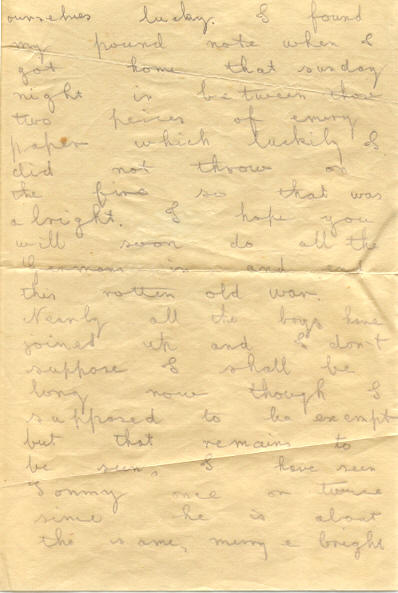 ourselves lucky. I found
my pound note when I
got home that sunday
night in between those
two peices of emery
paper which luckily I
did not throw on
the fire so that was
alright. I hope you
will soon do all the
Germans in and end
this rotten old war.
Nearly all the boys have
joined up and I don't
suppose I shall be
long now though I
supposed to be exempt
but that remains to
be seen, I have seen
Tommy once or twice
since he is about
the same, merry & bright